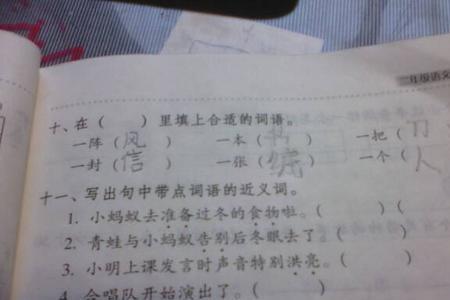 二年级语文
十、在（　　）里填上合适的词语。
一阵（风）　一本（书）　一把（刀
一封（信）　一张（纸）　一个（人
十一、写出句中带点词语的近义词。
1. 小蚂蚁去准备过冬的食物啦。（　　）（　　）
2. 青蛙与小蚂蚁告别后冬眠去了。（　　）
3. 小明上课发言时声音特别洪亮。（　　）
4. 合唱队开始演出了。（　　）